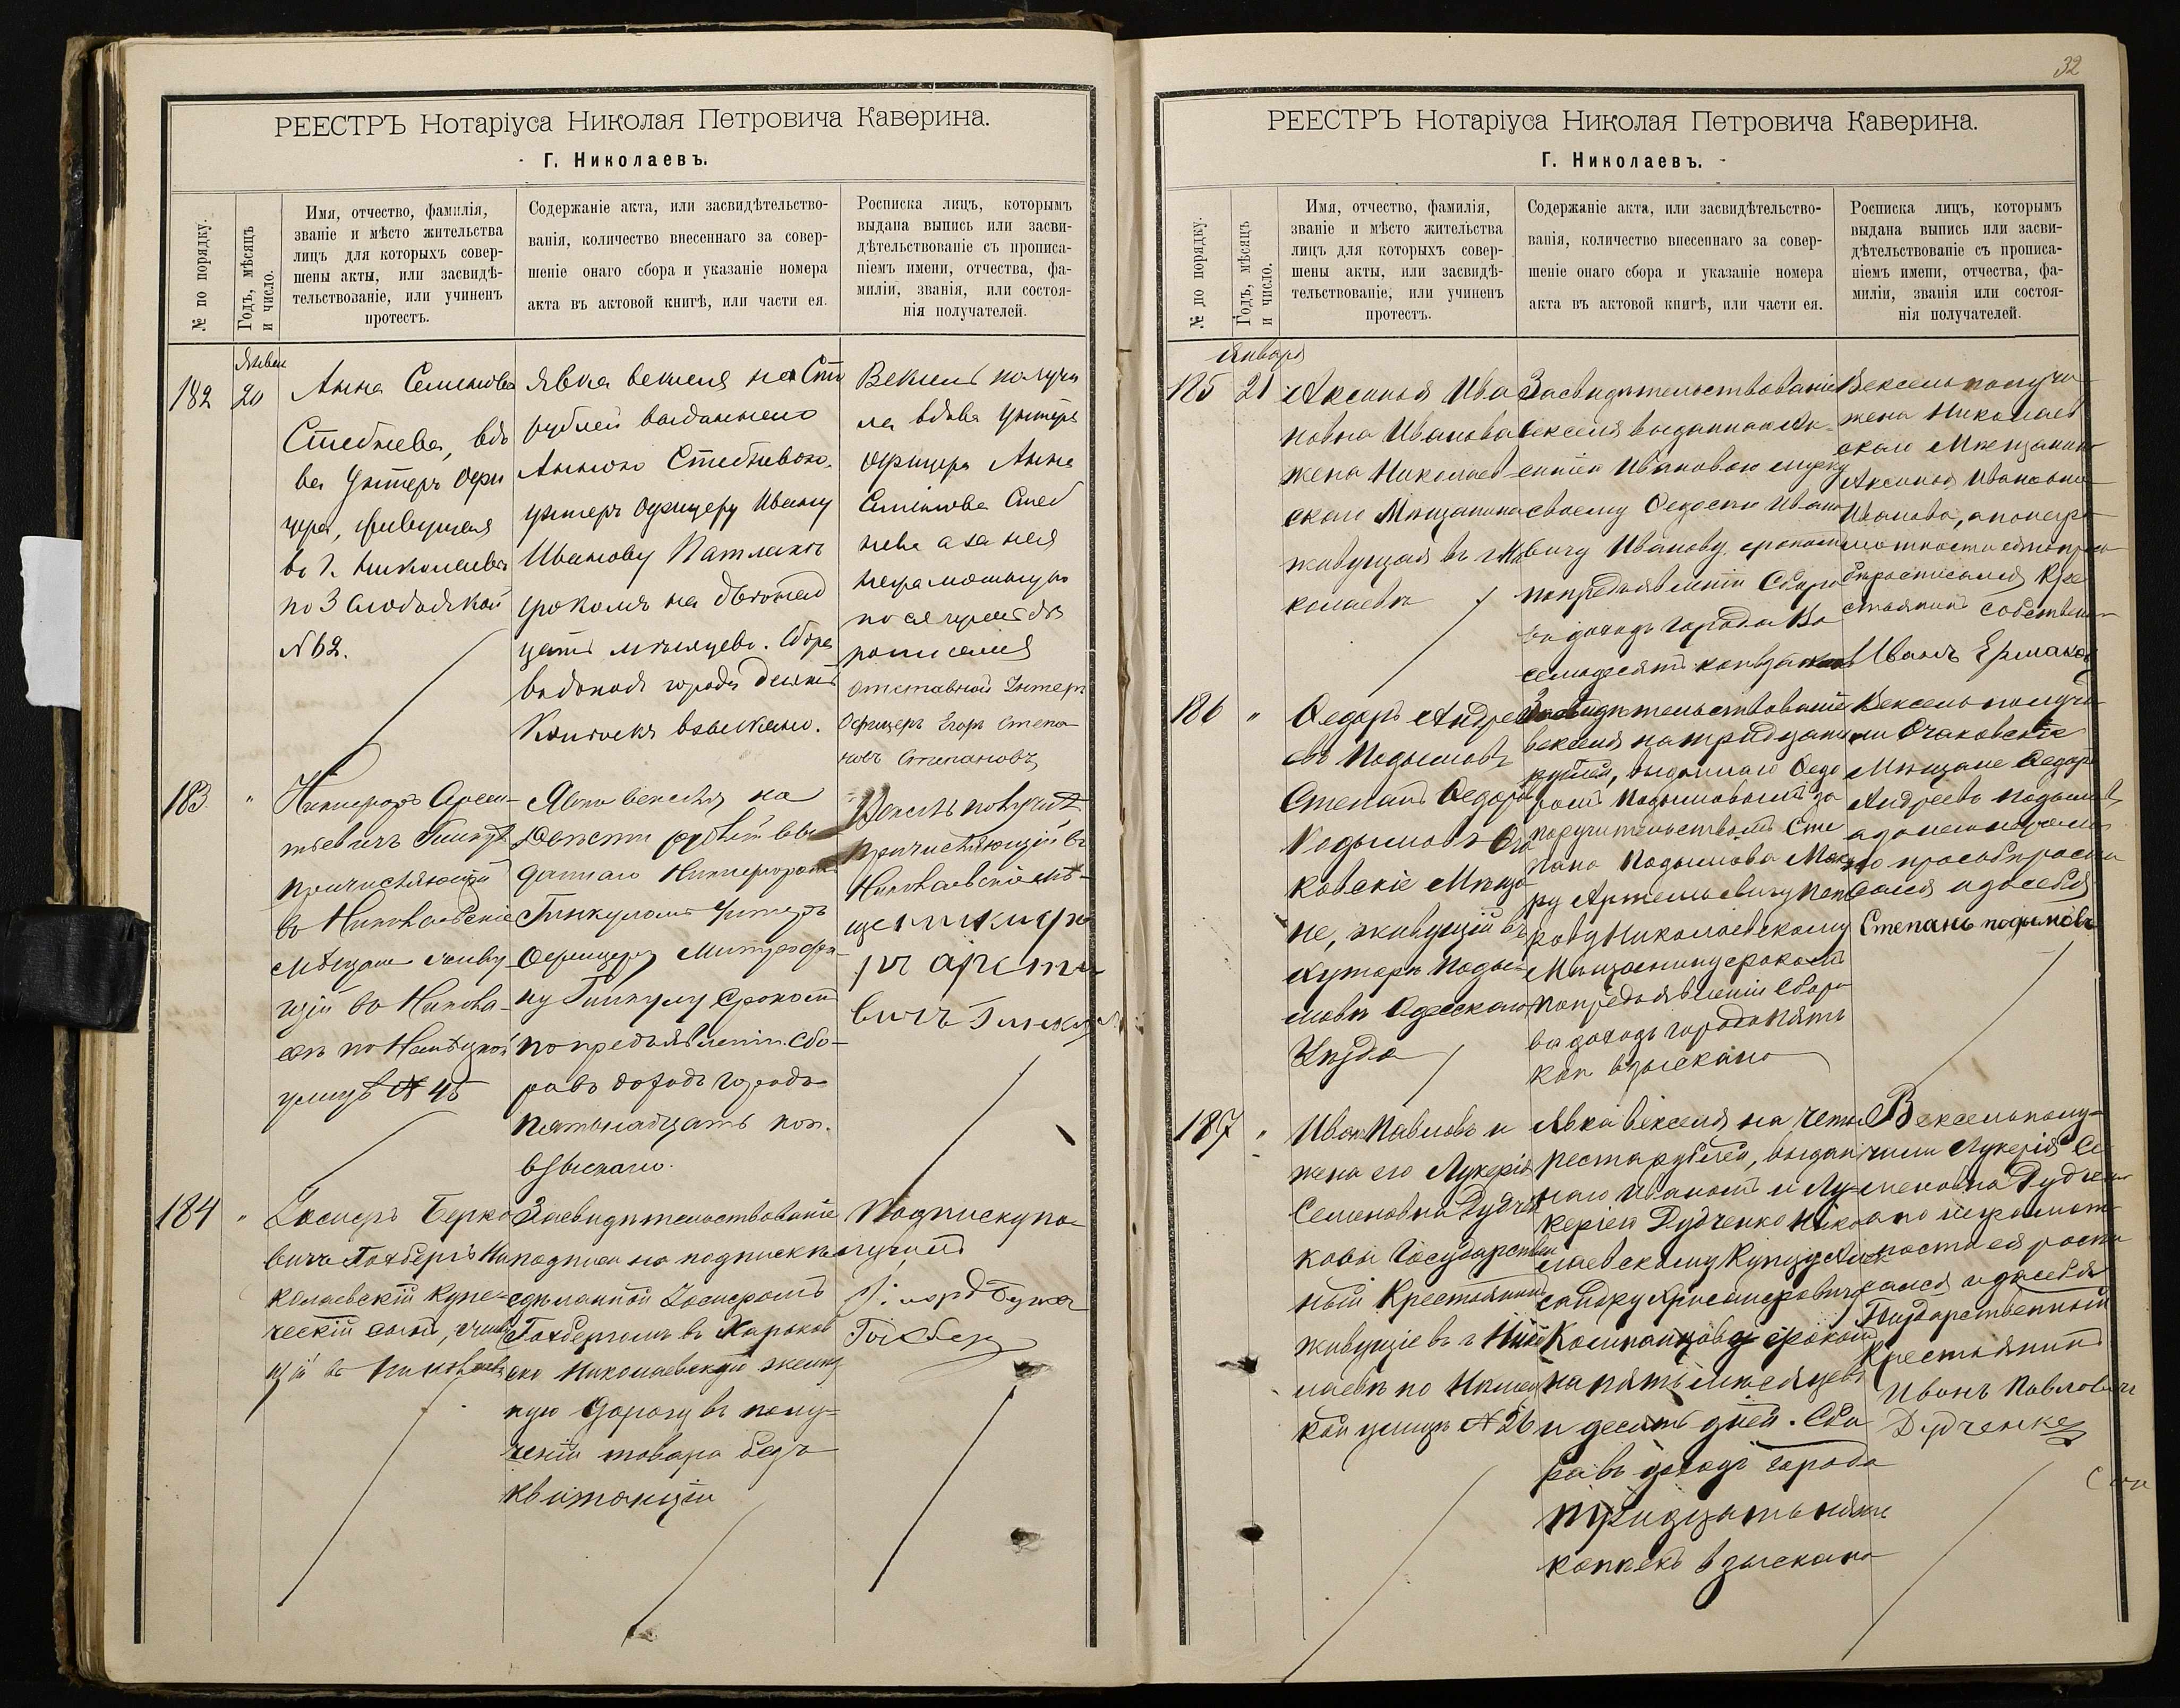 РЕЕСТРЪ Нотаріуса Николая Петровича Каверина.
Г. Николаевъ.
№ по порядку.
Годъ, мѣсяцъ
и число.
Имя, отчество, фамилія,
званіе и мѣсто жительства
лицъ для которыхъ совер-
шены акты, или засвидѣ-
тельствованіе, или учиненъ
протестъ.
Содержаніе акта, или засвидѣтельство-
ванія, количество внесеннаго за совер-
шеніе онаго сбора и указаніе номера
акта въ актовой книгѣ, или части ея.
Росписка лицъ, которымъ
выдана выпись или засви-
дѣтельствованіе съ прописа-
ніемъ имени, отчества, фа-
миліи, званія, или состоя-
нія получателей.
182
20
Анна Семенова
Стебнева, вдо
ва Унтеръ Офи
цера, живущая
въ г. Николаевѣ
по 3 Слободской
№ 62.
явка векселя на Сто
рублей выданнаго
Анною Стебневою
унтеръ офицеру Ивану
Иванову
срокомъ на двѣнад
цать мѣсяцевъ. Сбора
въ доходъ города десять
Копѣекъ взыскано.
Вексель получи
ла вдова Унтеръ
офицера Анна
Семенова Стеб
нева а за нея
неграмотную
по ея просьбѣ
росписался
отставной Унтеръ
Офицеръ Егоръ Степа
новъ Степановъ
183.
"
Никифоръ Арсен-
тьевичъ
причисляющійся
въ Николаевскіе
мѣщане живу
щій въ Никола-
евѣ по Нѣмецкой
улицѣ № 45
Явка векселя на
рублей вы
даннаго Никифоромъ
Унтеръ
Офицеру Митрофа-
ну срокомъ
по предъявленіи. Сбо-
ра въ доходъ города
пятьнадцать коп.
взыскано.
Вексель получилъ
причисляющійся въ
Николаевскіе мѣ-
щени кифо
ръ арсти
вичъ
184
"
Іосифъ Берко
вичъ Гохбергъ Ни
колаевскій купе-
ческій сынъ, живу
щій въ Николаевѣ
Засвидѣтельствованіе
подписи на подпискѣ
сдѣланной Іосифомъ
Гохбергомъ въ Харьков
ско Николаевскую желѣз
ную дорогу въ полу-
ченіи товара безъ
квитанціи
Подписку по
лучилъ
32
РЕЕСТРЪ Нотаріуса Николая Петровича Каверина.
Г. Николаевъ.
№ по порядку.
Годъ, мѣсяцъ
и число.
Имя, отчество, фамилія,
званіе и мѣсто жительства
лицъ для которыхъ совер-
шены акты, или засвидѣ-
тельствованіе, или учиненъ
протестъ.
Содержаніе акта, или засвидѣтельство-
ванія, количество внесеннаго за совер-
шеніе онаго сбора и указаніе номера
акта въ актовой книгѣ, или части ея.
Росписка лицъ, которымъ
выдана выпись или засви-
дѣтельствованіе съ прописа-
ніемъ имени, отчества, фа-
миліи, званія или состоя-
нія получателей.
Января
185
21
Аксинья Ива
новна Иванова
жена Николаев
скаго Мѣщанина
живущая въ г Ни
колаевѣ
Засвидѣтельствованіе
векселя выданнаго Ак-
синьей Ивановою мужу
своему Федосею Ивано
вичу Иванову срокомъ
по предъявленіи Сбора
въ доходъ города
семьдесятъ коп взыскано
Вексель получи
жена Николаев
скаго Мѣщанина
Аксинья Ивановна
Иванова, а по негра
мотности
росписался Кре
стьянинъ собственн
Иванъ Ермаковъ
186
"
Ѳедоръ Андре
евъ Подымовъ
Степанъ Ѳедоровъ
Подымовъ Оча
ковскіе Мѣща
не, живущій въ
хуторѣ Поды-
мовѣ Одесскаго
Уѣзда
Засвидѣтельствованіе
векселя на тридцать
рублей, выданнаго Ѳедо
ромъ Подымовымъ за
поручительствомъ Сте
пана Подымова Мака
ру Артемьевичу
Николаевскому
Мѣщанину срокомъ
по предъявленіи Сбора
въ доходъ города пять
коп взыскано
Вексель получи
ли Очаковскіе
Мѣщане Ѳедоръ
Андреевъ Подымовъ
а за него неграмот
по просьбѣ роспи
сался и за себя
Степанъ подымовъ
187
"
Иван Павловъ и
жена его Лукерія
Семеновна Дудчен
ковы Государствен
ный Крестьянинъ
живущіе въ г Нико
лаевѣ по Нѣмец
кой улицѣ № 26
Явка векселя на четы
реста рублей, выдан
наго Иваномъ и Лу-
керіею Дудченко Нико
лаевскому Купцу Алек
сандру
срокомъ
на пять мѣсяцевъ
и десять дней. Сбо
ра въ доходъ города
тридцать пять
копѣекъ взыскано
Вексель полу-
чили Лукерія Се
меновна Дудчен
а по неграмот
ности ея роспи
сался и за себя
Государственный
Крестьянинъ
Иванъ Павловичъ
Дудченко